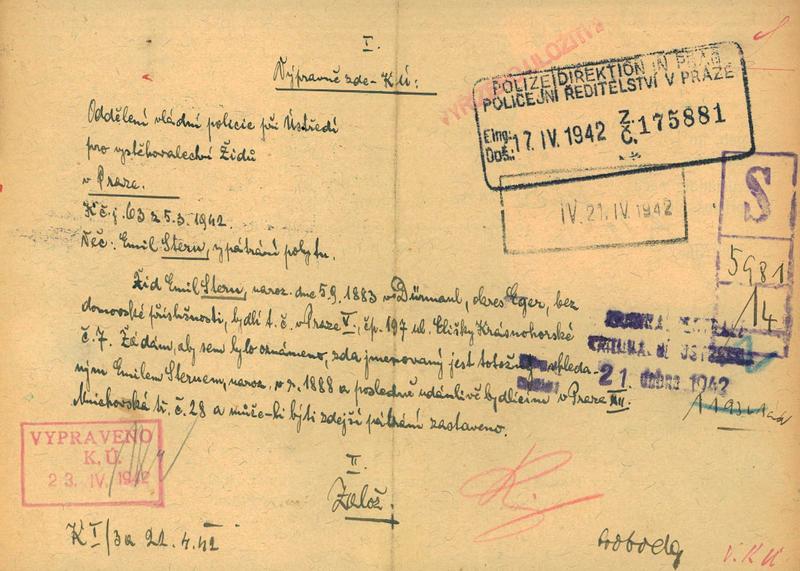 I.
Výpravně zde - K Ú:
VYŘÍZENO ULOŽITI
POLIZEIDIREKTION IN PRAG
POLICEJNÍ ŘEDITELSTVÍ V PRAZE
Eing.: 17. IV. 1942 Z. 175881
Doš.: Č.
IV. 21. IV 1942
S
5981
14
Oddělení vládní policie při Ústředí
pro vystěhovalectví Židů
v Praze.
K č.j. 63 z 5.3.1942.
Věc: Emil Stern, vypátrání pobytu.
Žid Emil Stern, naroz. dne 5.9.1883 v Dürmaul, okres Eger, bez
domovské příslušnosti, bydlí t.č. v Praze V., čp. 197 ul. Elišky Krásnohorské
č. 7. Žádám, aby sem bylo oznámeno, zda jmenovaný jest totožný s hleda-
ným Emilem Sternem, naroz. v r. 1888 a posledně udánlivě bydlícím v Praze XII.
Mnichovská tř. č. 28 a může-li býti zdejší pátrání zastaveno.
21. dubna 1942
VYPRAVENO
K. Ú.
23. IV. 1942
II.
Založ.
K I/3a 22.4.42
Svoboda
V. K Ú